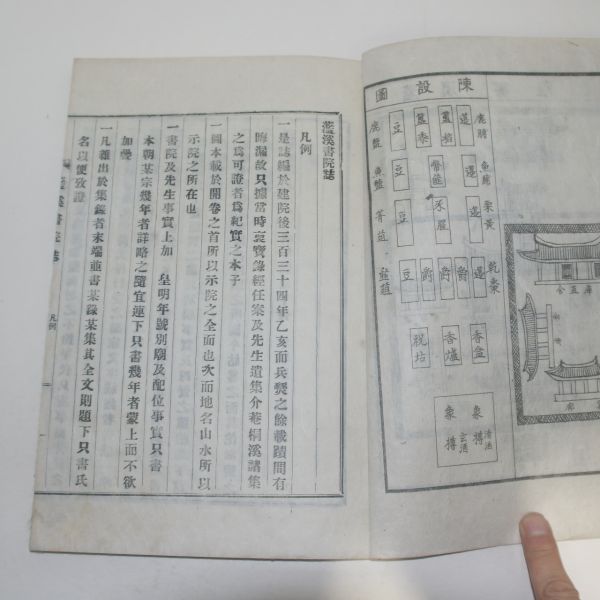 陳設圖
鹿脯
魚鱐
栗黃
乾棗
籩
籩
籩
籩
簋稻
幣篚
豕腥
爵
爵
簠黍
豆
豆
豆
豆
鹿醢
魚醢
菁菹
韮菹
香盒
香爐
祝坫
象樽 清酒
象樽 玄酒
灆溪書院誌
凡例
一是誌編於建院後三百三十四年乙亥而兵燹之餘載蹟間有
晦漏故只據當時裒寶錄經任案及先生遺集介菴桐溪諸集
之爲可證者爲紀實之本子
一圖本載於開卷之首所以示院之全面也次而地名山水所以
示院之所在也
一書院及先生事實上加 皇明年號別廟及配位事實只書
本朝某宗幾年者詳略之隨宜連下只書幾年者蒙上而不欲
加疊
一凡雜出於集錄者末端並書某錄某集其全文則題下只書氏
名以便攷證
灆溪書院誌
凡例
一